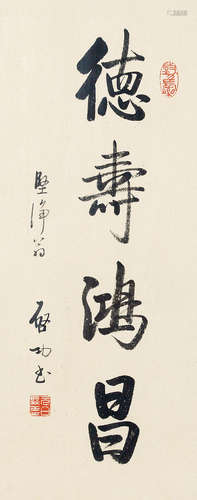 德壽鴻昌
堅淨翁
啟功書